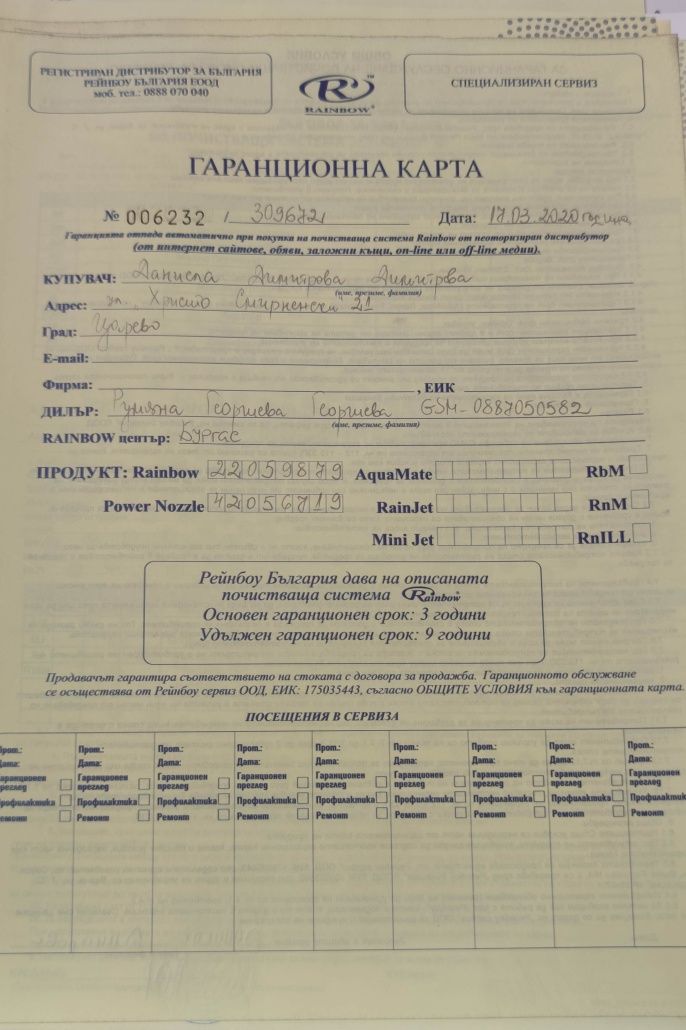 РЕГИСТРИРАН ДИСТРИБУТОР ЗА БЪЛГАРИЯ
РЕЙНБОУ БЪЛГАРИЯ ЕООД
моб. тел.: 0888 070 040
R™
RAINBOW®
СПЕЦИАЛИЗИРАН СЕРВИЗ
ГАРАНЦИОННА КАРТА
№ 006232 / 309672/ Дата: 17.03.2020 година
Гаранцията отпада автоматично при покупка на почистваща система Rainbow от неоторизиран дистрибутор
(от интернет сайтове, обяви, заложни къщи, on-line или off-line медии).
КУПУВАЧ: Даниела Димитрова Димитрова
(име, презиме, фамилия)
Адрес: ул. Христо Смирненски 21
Град: Царево
E-mail:
Фирма: , ЕИК
ДИЛЪР: Румяна Георгиева Георгиева GSM-0887050582
(име, презиме, фамилия)
RAINBOW център: Бургас
ПРОДУКТ: Rainbow 22059879 AquaMate RbM
Power Nozzle 42056719 RainJet RnM
Mini Jet RnILL
Рейнбоу България дава на описаната
почистваща система Rainbow®
Основен гаранционен срок: 3 години
Удължен гаранционен срок: 9 години
Продавачът гарантира съответствието на стоката с договора за продажба. Гаранционното обслужване
се осъществява от Рейнбоу сервиз ООД, ЕИК: 175035443, съгласно ОБЩИТЕ УСЛОВИЯ към гаранционната карта.
ПОСЕЩЕНИЯ В СЕРВИЗА
Прот.: Прот.: Прот.: Прот.: Прот.: Прот.: Прот.: Прот.: Прот.:
Дата: Дата: Дата: Дата: Дата: Дата: Дата: Дата: Дата:
Гаранционен Гаранционен Гаранционен Гаранционен Гаранционен Гаранционен Гаранционен Гаранционен Гаранционен
преглед преглед преглед преглед преглед преглед преглед преглед преглед
Профилактика Профилактика Профилактика Профилактика Профилактика Профилактика Профилактика Профилактика Профилактика
Ремонт Ремонт Ремонт Ремонт Ремонт Ремонт Ремонт Ремонт Ремонт